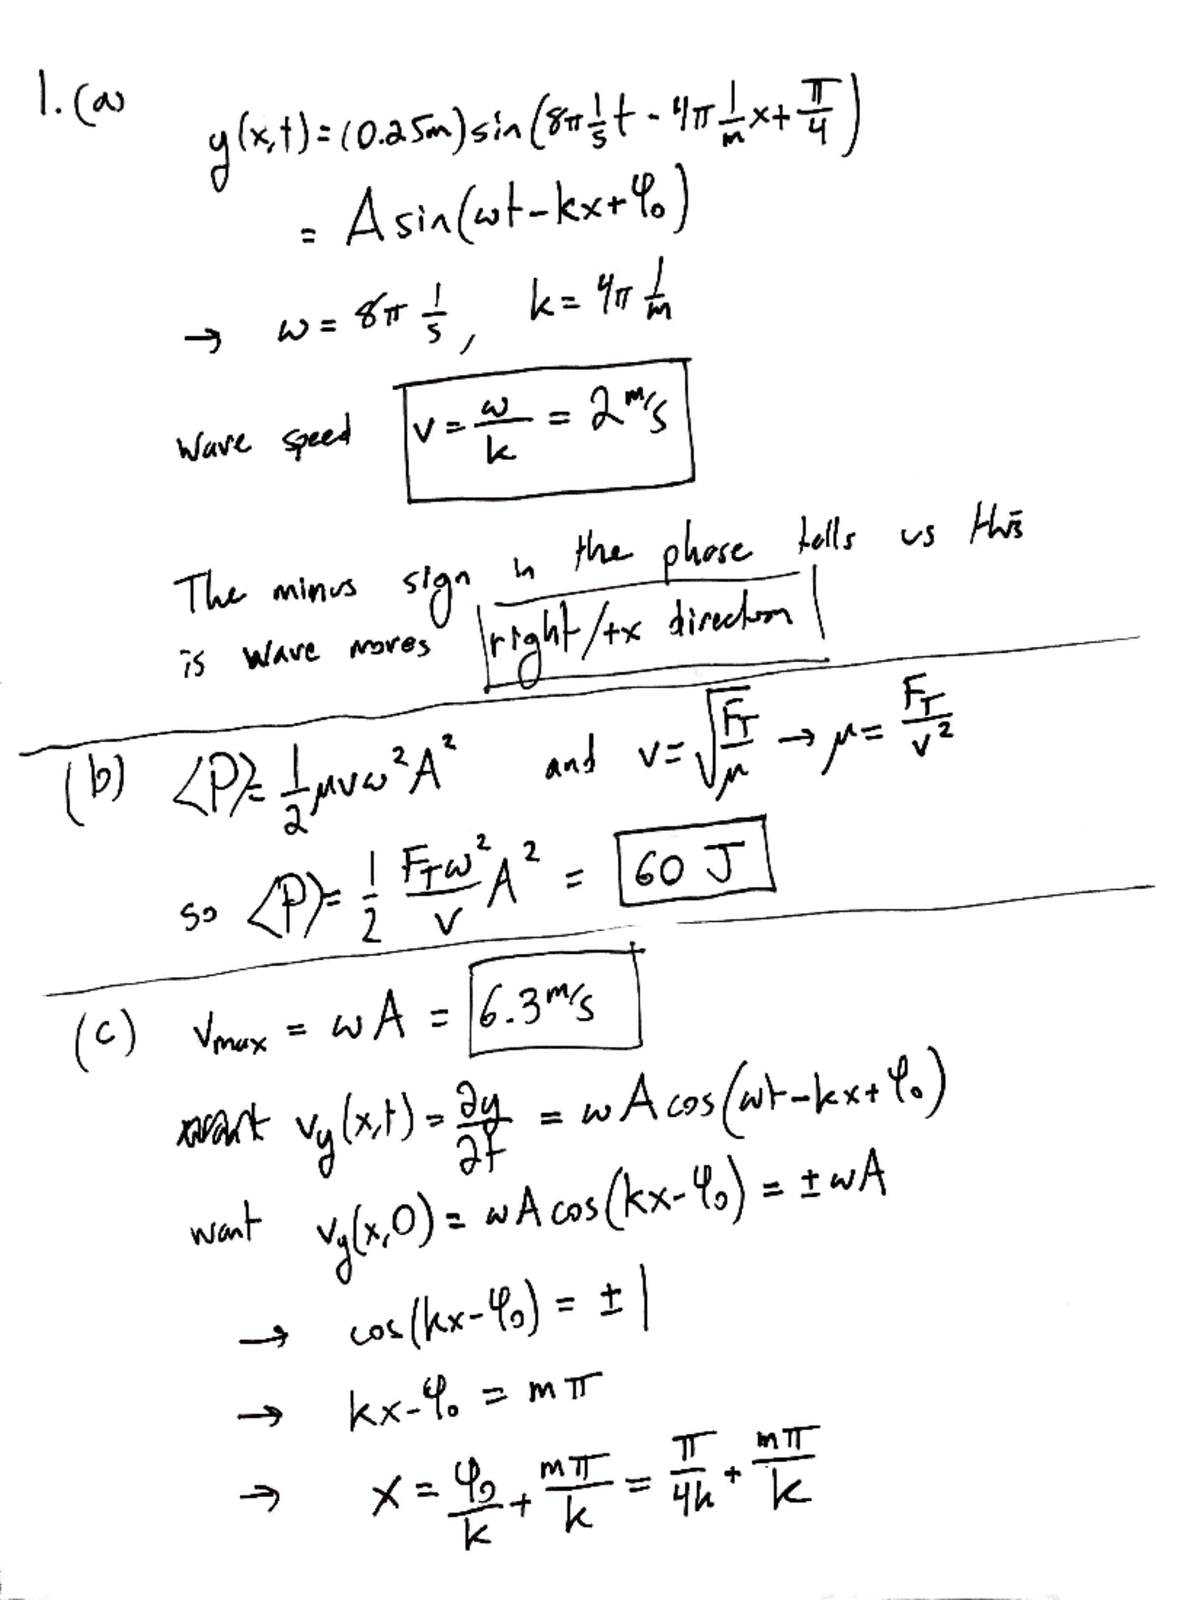 1. (a)
y(x,t) = (0.25m) sin(8π 1/s t - 4π 1/m x + π/4)
= A sin(ωt - kx + φ₀)
→ ω = 8π 1/s, k = 4π 1/m
wave speed v = ω/k = 2 m/s
The minus sign in the phase tells us this
is wave moves right/+x direction
(b) <P> = 1/2 μvω²A² and v = √(F_T/μ) → μ = F_T/v²
so <P> = 1/2 F_Tω²/v A² = 60 J
(c) v_max = ωA = 6.3 m/s
v_y(x,t) = ∂y/∂t = ωA cos(ωt - kx + φ₀)
want v_y(x,0) = ωA cos(kx - φ₀) = ±ωA
→ cos(kx - φ₀) = ±1
→ kx - φ₀ = mπ
→ x = φ₀/k + mπ/k = π/4k + mπ/k